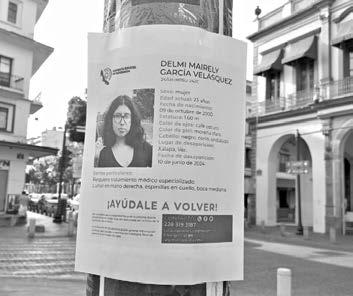 DELMI MAIRELY
GARCÍA VELÁSQUEZ
Sexo: mujer
Edad actual: 23 años
Fecha de nacimiento:
09 de octubre de 2000
Estatura: 1.60 m
Color de ojos: café oscuro
Color de piel: morena clara
Cabello: negro,
Lugar de desaparición:
Xalapa, Ver.
Fecha de desaparición:
10 de junio de 2024
Señas particulares:
Requiere tratamiento médico especializado
Lunar en mano derecha, espinillas en cuello, boca mediana
¡AYÚDALE A VOLVER!
228 319 3187